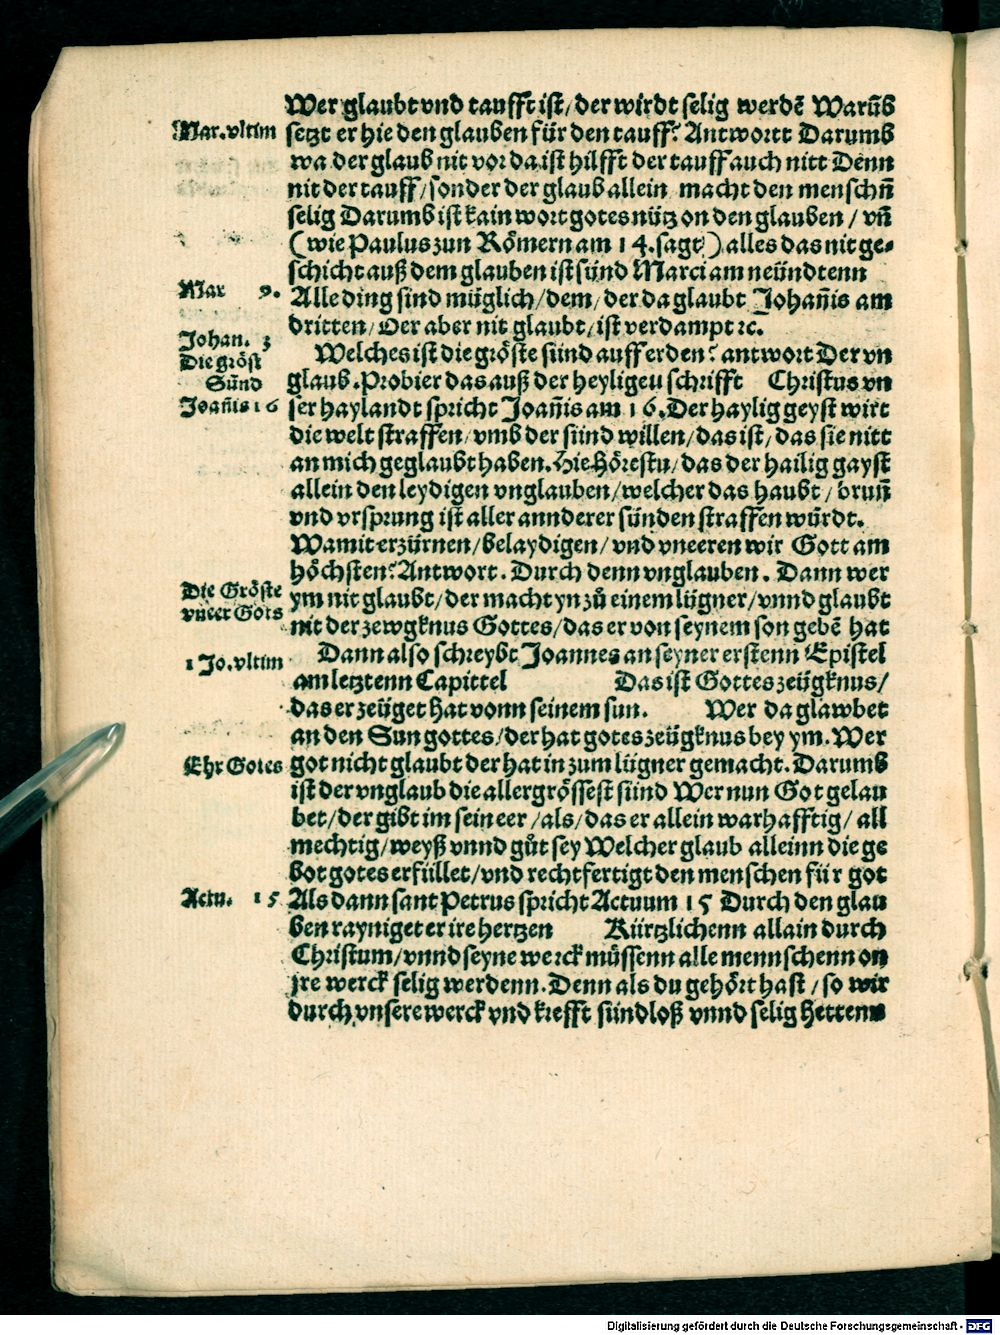 Wer glaubt vnd taufft ist/ der wirdt selig werdē Warūb
Mar. vltim
setzt er hie den glauben für den tauff? Antwortt Darumb
wa der glaub nit vor da ist hilfft der tauff auch nitt Denn
nit der tauff/ sonder der glaub allein macht den menschñ
selig Darumb ist kain wort gotes nütz on den glauben / vñ
( wie Paulus zun Römern am 14. sagt ) alles das nit ge-
schicht auß dem glauben ist sünd Marci am neündtenn
Mar 9.
Alle ding sind müglich/ dem/ der da glaubt Johañis am
dritten/ Der aber nit glaubt/ ist verdampt ꝛc.
Johan. 3
Welches ist die gröste sünd auff erden? antwort Der vn
Die gröst
Sünd
glaub. Probier das auß der heyligeu schrifft Christus vn
Joañis 16
ser haylandt spricht Joañis am 16. Der haylig geyst wirt
die welt straffen/ vmb der sünd willen/ das ist/ das sie nitt
an mich geglaubt haben. Hie hörestu/ das der hailig gayst
allein den leydigen vnglauben/ welcher das haubt / brunñ
vnd vrsprung ist aller annderer sünden straffen würdt.
Wamit erzürnen/ belaydigen/ vnd vneeren wir Gott am
höchsten? Antwort. Durch denn vnglauben. Dann wer
Die Gröste
vneer Gots
ym nit glaubt/ der macht yn zů einem lügner/ vnnd glaubt
nit der zewgknus Gottes/ das er von seynem son gebē hat
Dann also schreybt Joannes an seyner erstenn Epistel
1 Jo. vltim
am letztenn Capittel Das ist Gottes zeügknus/
das er zeüget hat vonn seinem sun. Wer da glawbet
an den Sun gottes/ der hat gotes zeügknus bey ym. Wer
Ehr Gotes
got nicht glaubt der hat in zum lügner gemacht. Darumb
ist der vnglaub die allergrössest sünd Wer nun Got gelau
bet/ der gibt im sein eer / als/ das er allein warhafftig/ all
mechtig/ weyß vnnd gůt sey Welcher glaub alleinn die ge
bot gotes erfüllet/ vnd rechtfertigt den menschen für got
Actu. 15
Als dann sant Petrus spricht Actuum 15 Durch den glau
ben rayniget er ire hertzen Kürtzlichenn allain durch
Christum/ vnnd seyne werck müssenn alle mennschenn on
jre werck selig werdenn. Denn als du gehört hast / so wir
durch vnsere werck vnd krefft sündloß vnnd selig hettenn
Digitalisierung gefördert durch die Deutsche Forschungsgemeinschaft - DFG